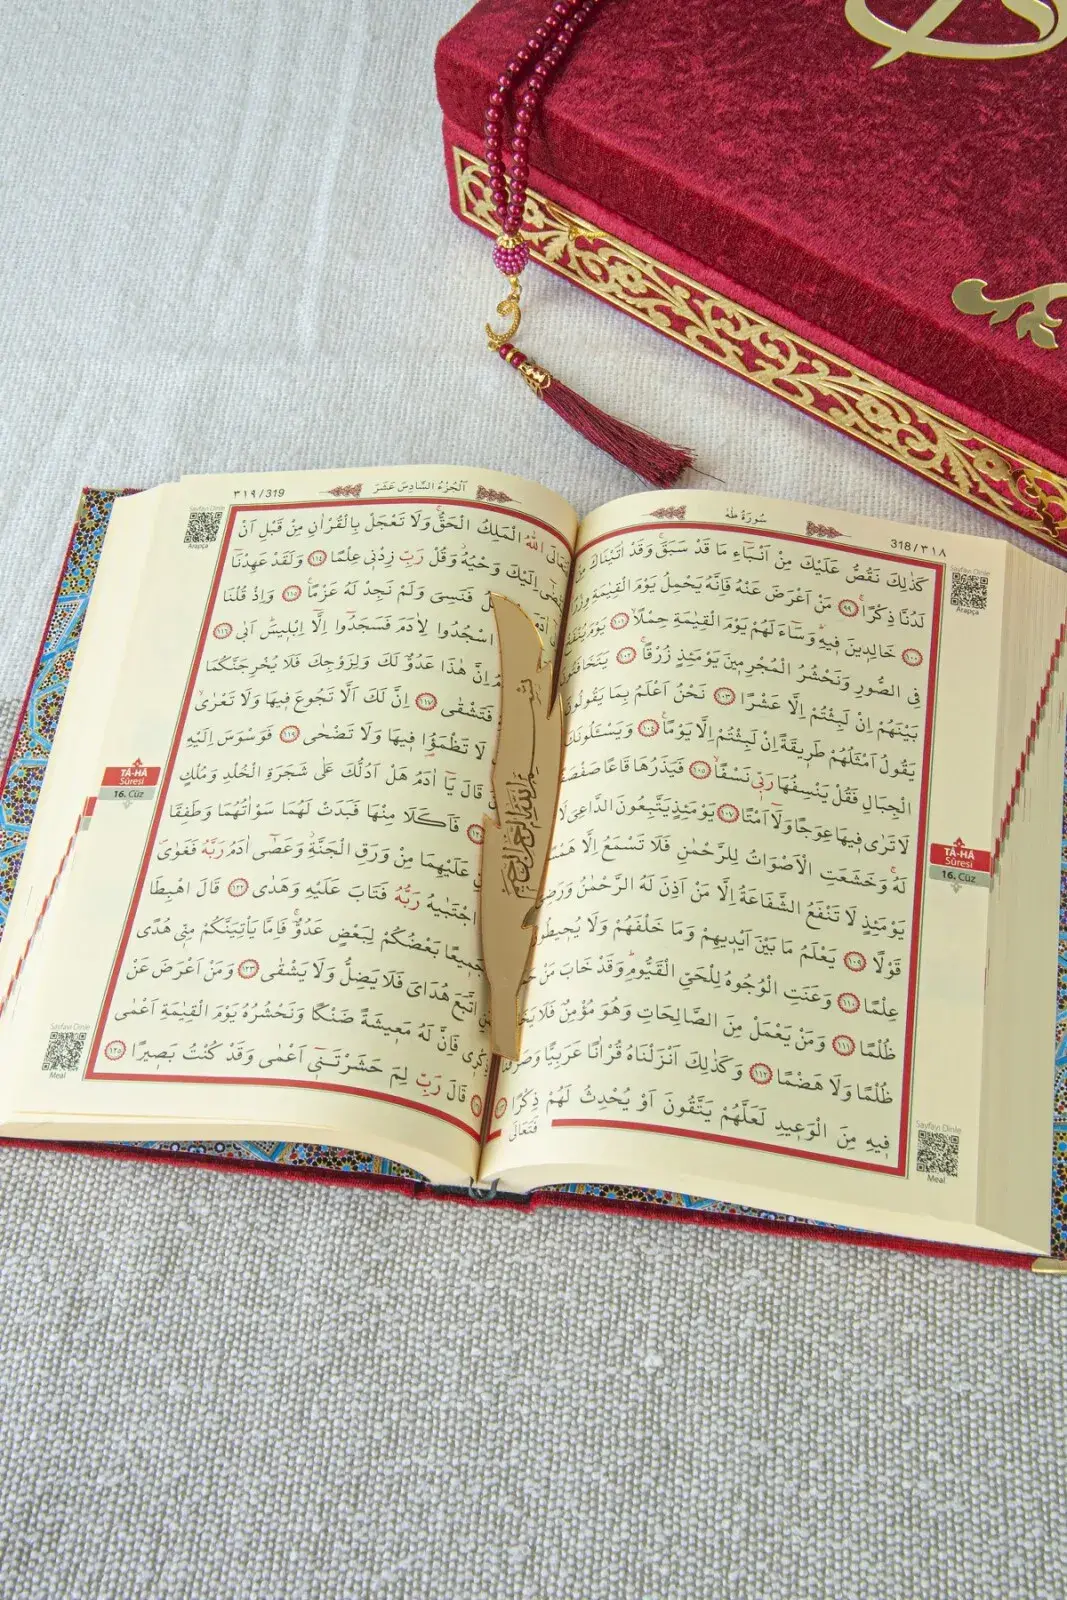 سُورَةُ طٰهٰ
318/٣١٨
Sayfayı Dinle
Arapça
كَذٰلِكَ نَقُصُّ عَلَيْكَ مِنْ اَنْبَٓاءِ مَا قَدْ سَبَقَۚ وَقَدْ اٰتَيْنَاكَ مِنْ
لَدُنَّا ذِكْرًاۚ ٩٩ مَنْ اَعْرَضَ عَنْهُ فَاِنَّهُ يَحْمِلُ يَوْمَ الْقِيٰمَةِ وِزْرًا
١٠٠ خَالِدٖينَ فٖيهِۜ وَسَٓاءَ لَهُمْ يَوْمَ الْقِيٰمَةِ حِمْلًاۙ ١٠١ يَوْمَ يُنْفَخُ
فِي الصُّورِ وَنَحْشُرُ الْمُجْرِمٖينَ يَوْمَئِذٍ زُرْقًاۚ ١٠٢ يَتَخَافَتُونَ
بَيْنَهُمْ اِنْ لَبِثْتُمْ اِلَّا عَشْرًا ١٠٣ نَحْنُ اَعْلَمُ بِمَا يَقُولُونَ
يَقُولُ اَمْثَلُهُمْ طَرٖيقَةً اِنْ لَبِثْتُمْ اِلَّا يَوْمًا۟ ١٠٤ وَيَسْـَٔلُونَكَ
الْجِبَالِ فَقُلْ يَنْسِفُهَا رَبّٖي نَسْفًاۙ ١٠٥ فَيَذَرُهَا قَاعًا صَفْصَفًا
لَا تَرٰى فٖيهَا عِوَجًا وَلَٓا اَمْتًاۜ ١٠٧ يَوْمَئِذٍ يَتَّبِعُونَ الدَّاعِيَ لَا
لَهُۚ وَخَشَعَتِ الْاَصْوَاتُ لِلرَّحْمٰنِ فَلَا تَسْمَعُ اِلَّا هَمْسًا
يَوْمَئِذٍ لَا تَنْفَعُ الشَّفَاعَةُ اِلَّا مَنْ اَذِنَ لَهُ الرَّحْمٰنُ وَرَضِيَ
قَوْلًا ١٠٩ يَعْلَمُ مَا بَيْنَ اَيْدٖيهِمْ وَمَا خَلْفَهُمْ وَلَا يُحٖيطُونَ
عِلْمًا ١١٠ وَعَنَتِ الْوُجُوهُ لِلْحَيِّ الْقَيُّومِۜ وَقَدْ خَابَ مَنْ
ظُلْمًا ١١١ وَمَنْ يَعْمَلْ مِنَ الصَّالِحَاتِ وَهُوَ مُؤْمِنٌ فَلَا
ظُلْمًا وَلَا هَضْمًا ١١٢ وَكَذٰلِكَ اَنْزَلْنَاهُ قُرْاٰنًا عَرَبِيًّا وَصَرَّفْنَا
فٖيهِ مِنَ الْوَعٖيدِ لَعَلَّهُمْ يَتَّقُونَ اَوْ يُحْدِثُ لَهُمْ ذِكْرًا
فَتَعَالَى
TÂ-HÂ
Sûresi
16. Cüz
Sayfayı Dinle
Meal
اَلْجُزْءُ السَّادِسَ عَشَرَ
٣١٩/319
Sayfayı Dinle
Arapça
فَتَعَالَى اللّٰهُ الْمَلِكُ الْحَقُّۚ وَلَا تَعْجَلْ بِالْقُرْاٰنِ مِنْ قَبْلِ اَنْ
يُقْضٰٓى اِلَيْكَ وَحْيُهُۘ وَقُلْ رَبِّ زِدْنٖي عِلْمًا ١١٤ وَلَقَدْ عَهِدْنَٓا
فَنَسِيَ وَلَمْ نَجِدْ لَهُ عَزْمًا۟ ١١٥ وَاِذْ قُلْنَا
اسْجُدُوا لِاٰدَمَ فَسَجَدُٓوا اِلَّٓا اِبْلٖيسَۜ اَبٰى ١١٦
اِنَّ هٰذَا عَدُوٌّ لَكَ وَلِزَوْجِكَ فَلَا يُخْرِجَنَّكُمَا
فَتَشْقٰى ١١٧ اِنَّ لَكَ اَلَّا تَجُوعَ فٖيهَا وَلَا تَعْرٰىۙ
لَا تَظْمَؤُ۬ا فٖيهَا وَلَا تَضْحٰى ١١٩ فَوَسْوَسَ اِلَيْهِ
قَالَ يَٓا اٰدَمُ هَلْ اَدُلُّكَ عَلٰى شَجَرَةِ الْخُلْدِ وَمُلْكٍ
١٢٠ فَاَكَلَا مِنْهَا فَبَدَتْ لَهُمَا سَوْاٰتُهُمَا وَطَفِقَا
عَلَيْهِمَا مِنْ وَرَقِ الْجَنَّةِۘ وَعَصٰٓى اٰدَمُ رَبَّهُ فَغَوٰى
اجْتَبٰيهُ رَبُّهُ فَتَابَ عَلَيْهِ وَهَدٰى ١٢٢ قَالَ اهْبِطَا
جَمٖيعًا بَعْضُكُمْ لِبَعْضٍ عَدُوٌّۚ فَاِمَّا يَأْتِيَنَّكُمْ مِنّٖي هُدًى
اتَّبَعَ هُدَايَ فَلَا يَضِلُّ وَلَا يَشْقٰى ١٢٣ وَمَنْ اَعْرَضَ عَنْ
ذِكْرٖي فَاِنَّ لَهُ مَعٖيشَةً ضَنْكًا وَنَحْشُرُهُ يَوْمَ الْقِيٰمَةِ اَعْمٰى
قَالَ رَبِّ لِمَ حَشَرْتَنٖٓي اَعْمٰى وَقَدْ كُنْتُ بَصٖيرًا ١٢٥
TÂ-HÂ
Sûresi
16. Cüz
Sayfayı Dinle
Meal
بسم الله الرحمن الرحيم